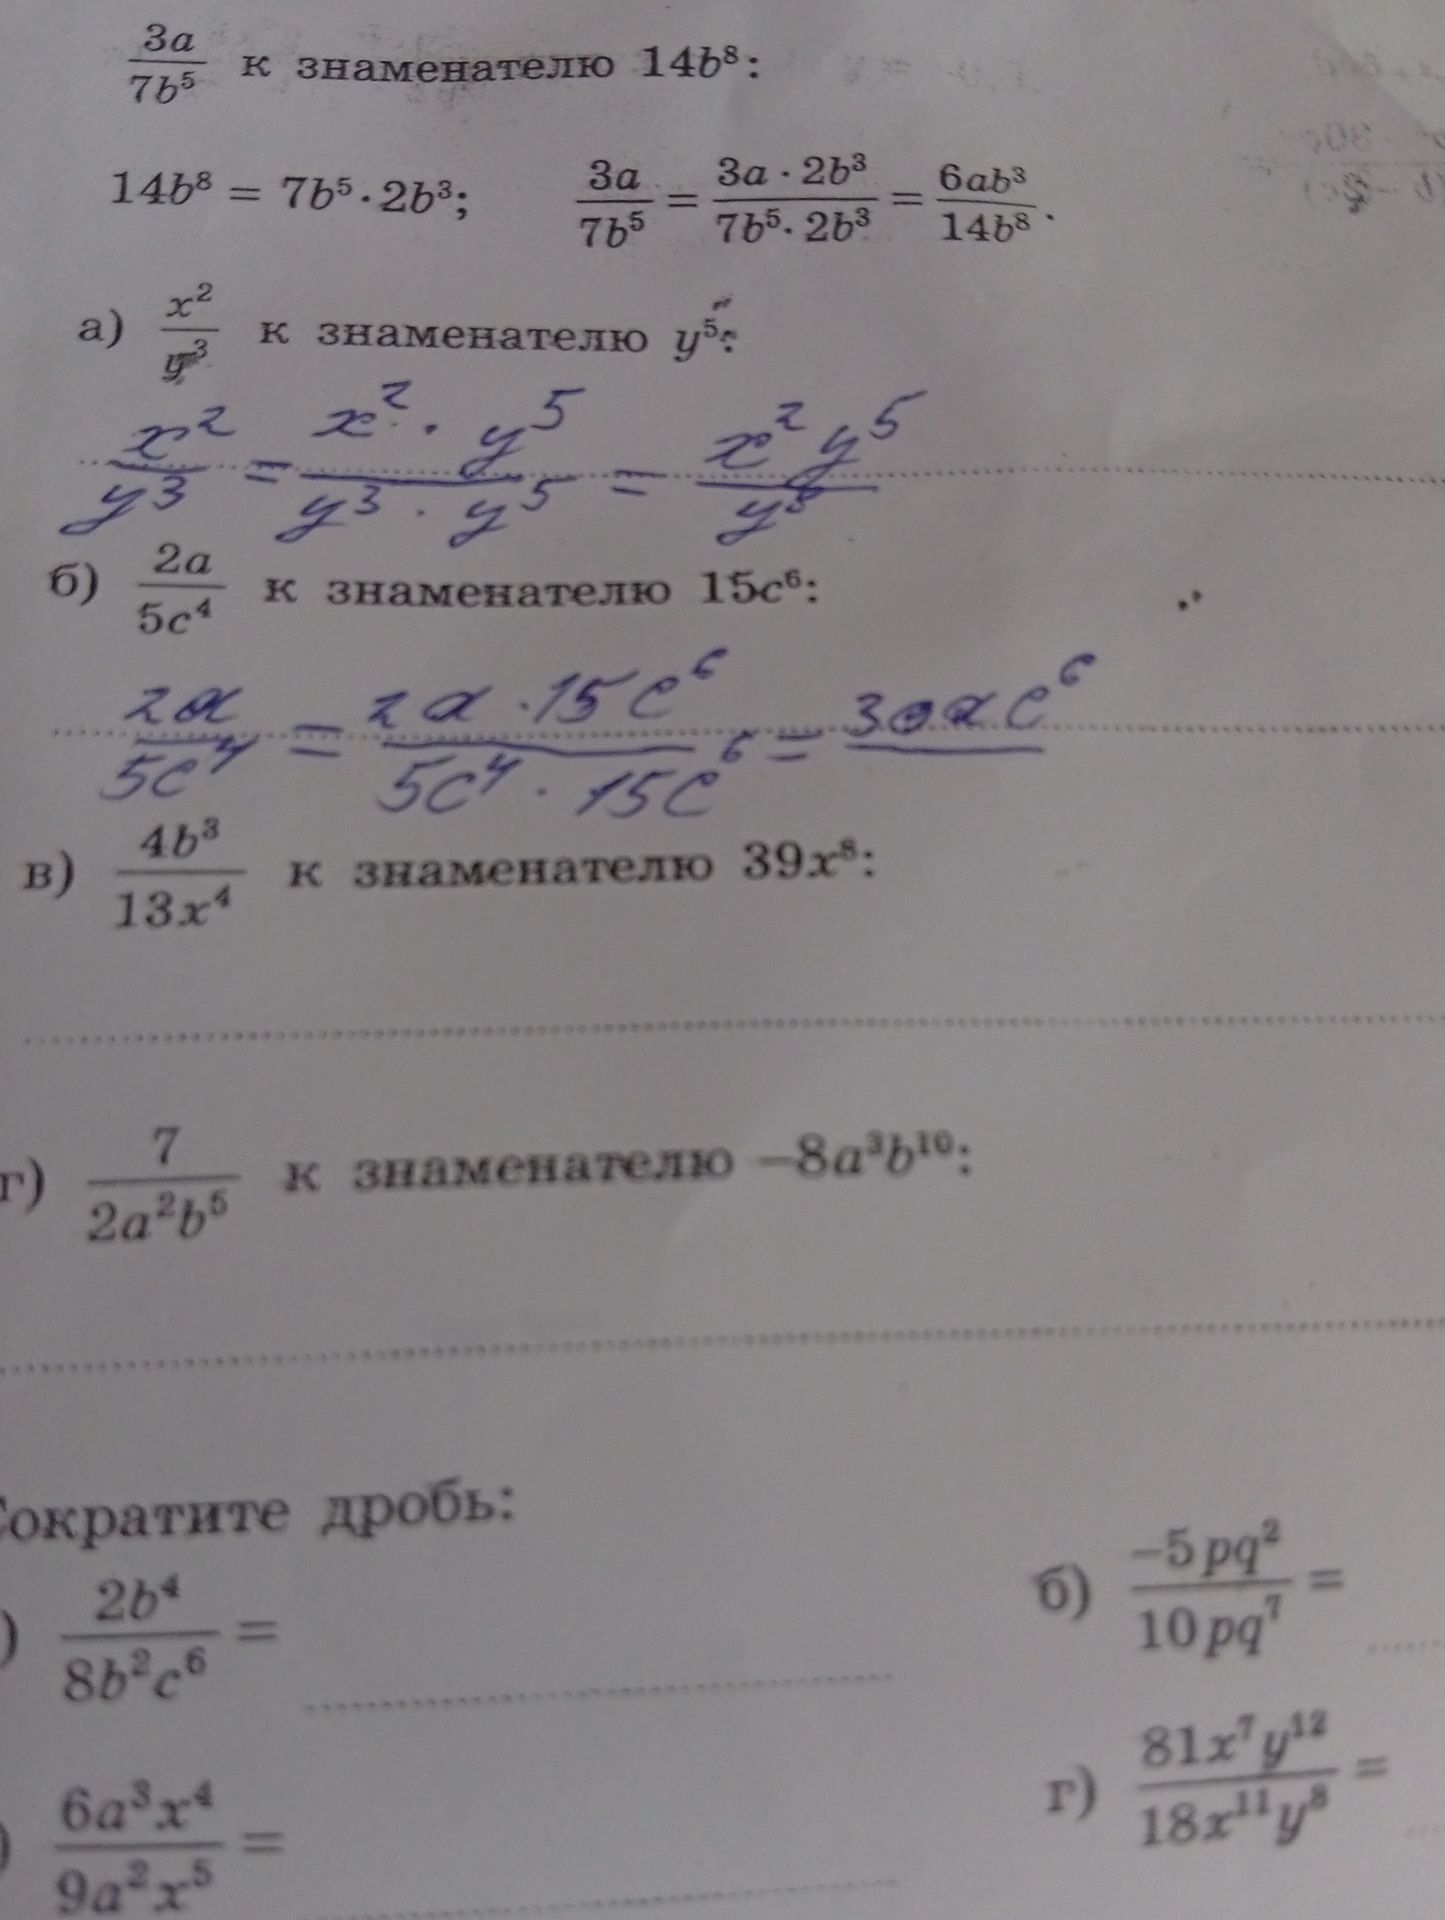 3a/7b⁵ к знаменателю 14b⁸:
14b⁸ = 7b⁵ · 2b³; 3a/7b⁵ = 3a · 2b³/7b⁵ · 2b³ = 6ab³/14b⁸.
а) x²/y³ к знаменателю y⁵:
x²/y³ = x² · y⁵/y³ · y⁵ = x²y⁵/y⁸
б) 2a/5c⁴ к знаменателю 15c⁶:
2a/5c⁴ = 2a · 15c⁶/5c⁴ · 15c⁶ = 30ac⁶
в) 4b³/13x⁴ к знаменателю 39x⁸:
г) 7/2a²b⁵ к знаменателю –8a³b¹⁰:
Сократите дробь:
) 2b⁴/8b²c⁶ =
б) –5pq²/10pq⁷ =
) 6a³x⁴/9a²x⁵ =
г) 81x⁷y¹²/18x¹¹y⁸ =